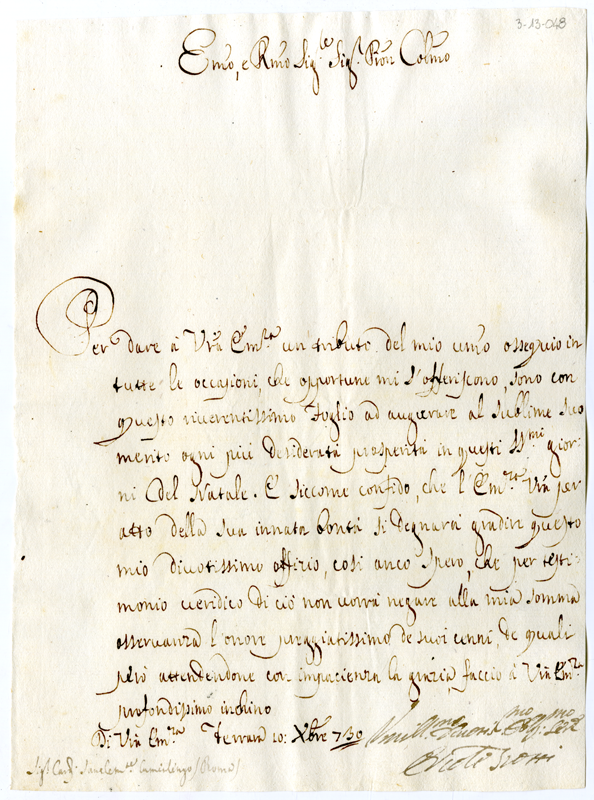 3-13-048
Emo, e Rmo Sig.re Sig.r Pron Colmo
Per dare à Vrã Em.za un tributo del mio umo ossequio in
tutte le occasioni, che opportune mi s'offeriscono, sono con
questo riverentissimo foglio ad augurare al sublime suo
merito ogni più desiderata prosperità in questi SS.mi gior-
ni del Natale. E siccome confido, che l'Em.za Vrã per
atto della sua innata bontà si degnarà gradire questo
mio divotissimo offizio, così anco spero, che per testi-
monio veridico di ciò non vorrà negare alla mia somma
osservanza l'onore preggiatissimo de suoi cenni, de quali
però attendendone con impacienza la grazia, faccio à Vrã Em.za
profondissimo inchino
Di Vrã Em.za Ferrara 10: Xbre 730
Umill.mo
Sig.r Card.
(Roma)